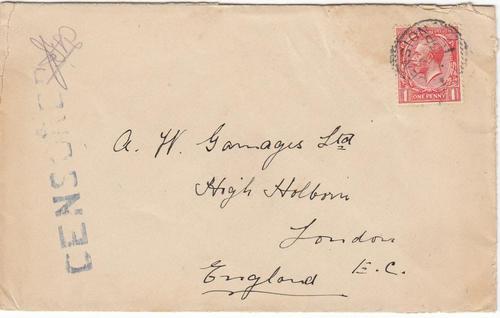 CENSORED
ONE PENNY
1 1
A. W. Gamages Ltd
High Holborn
London
E.C.
England